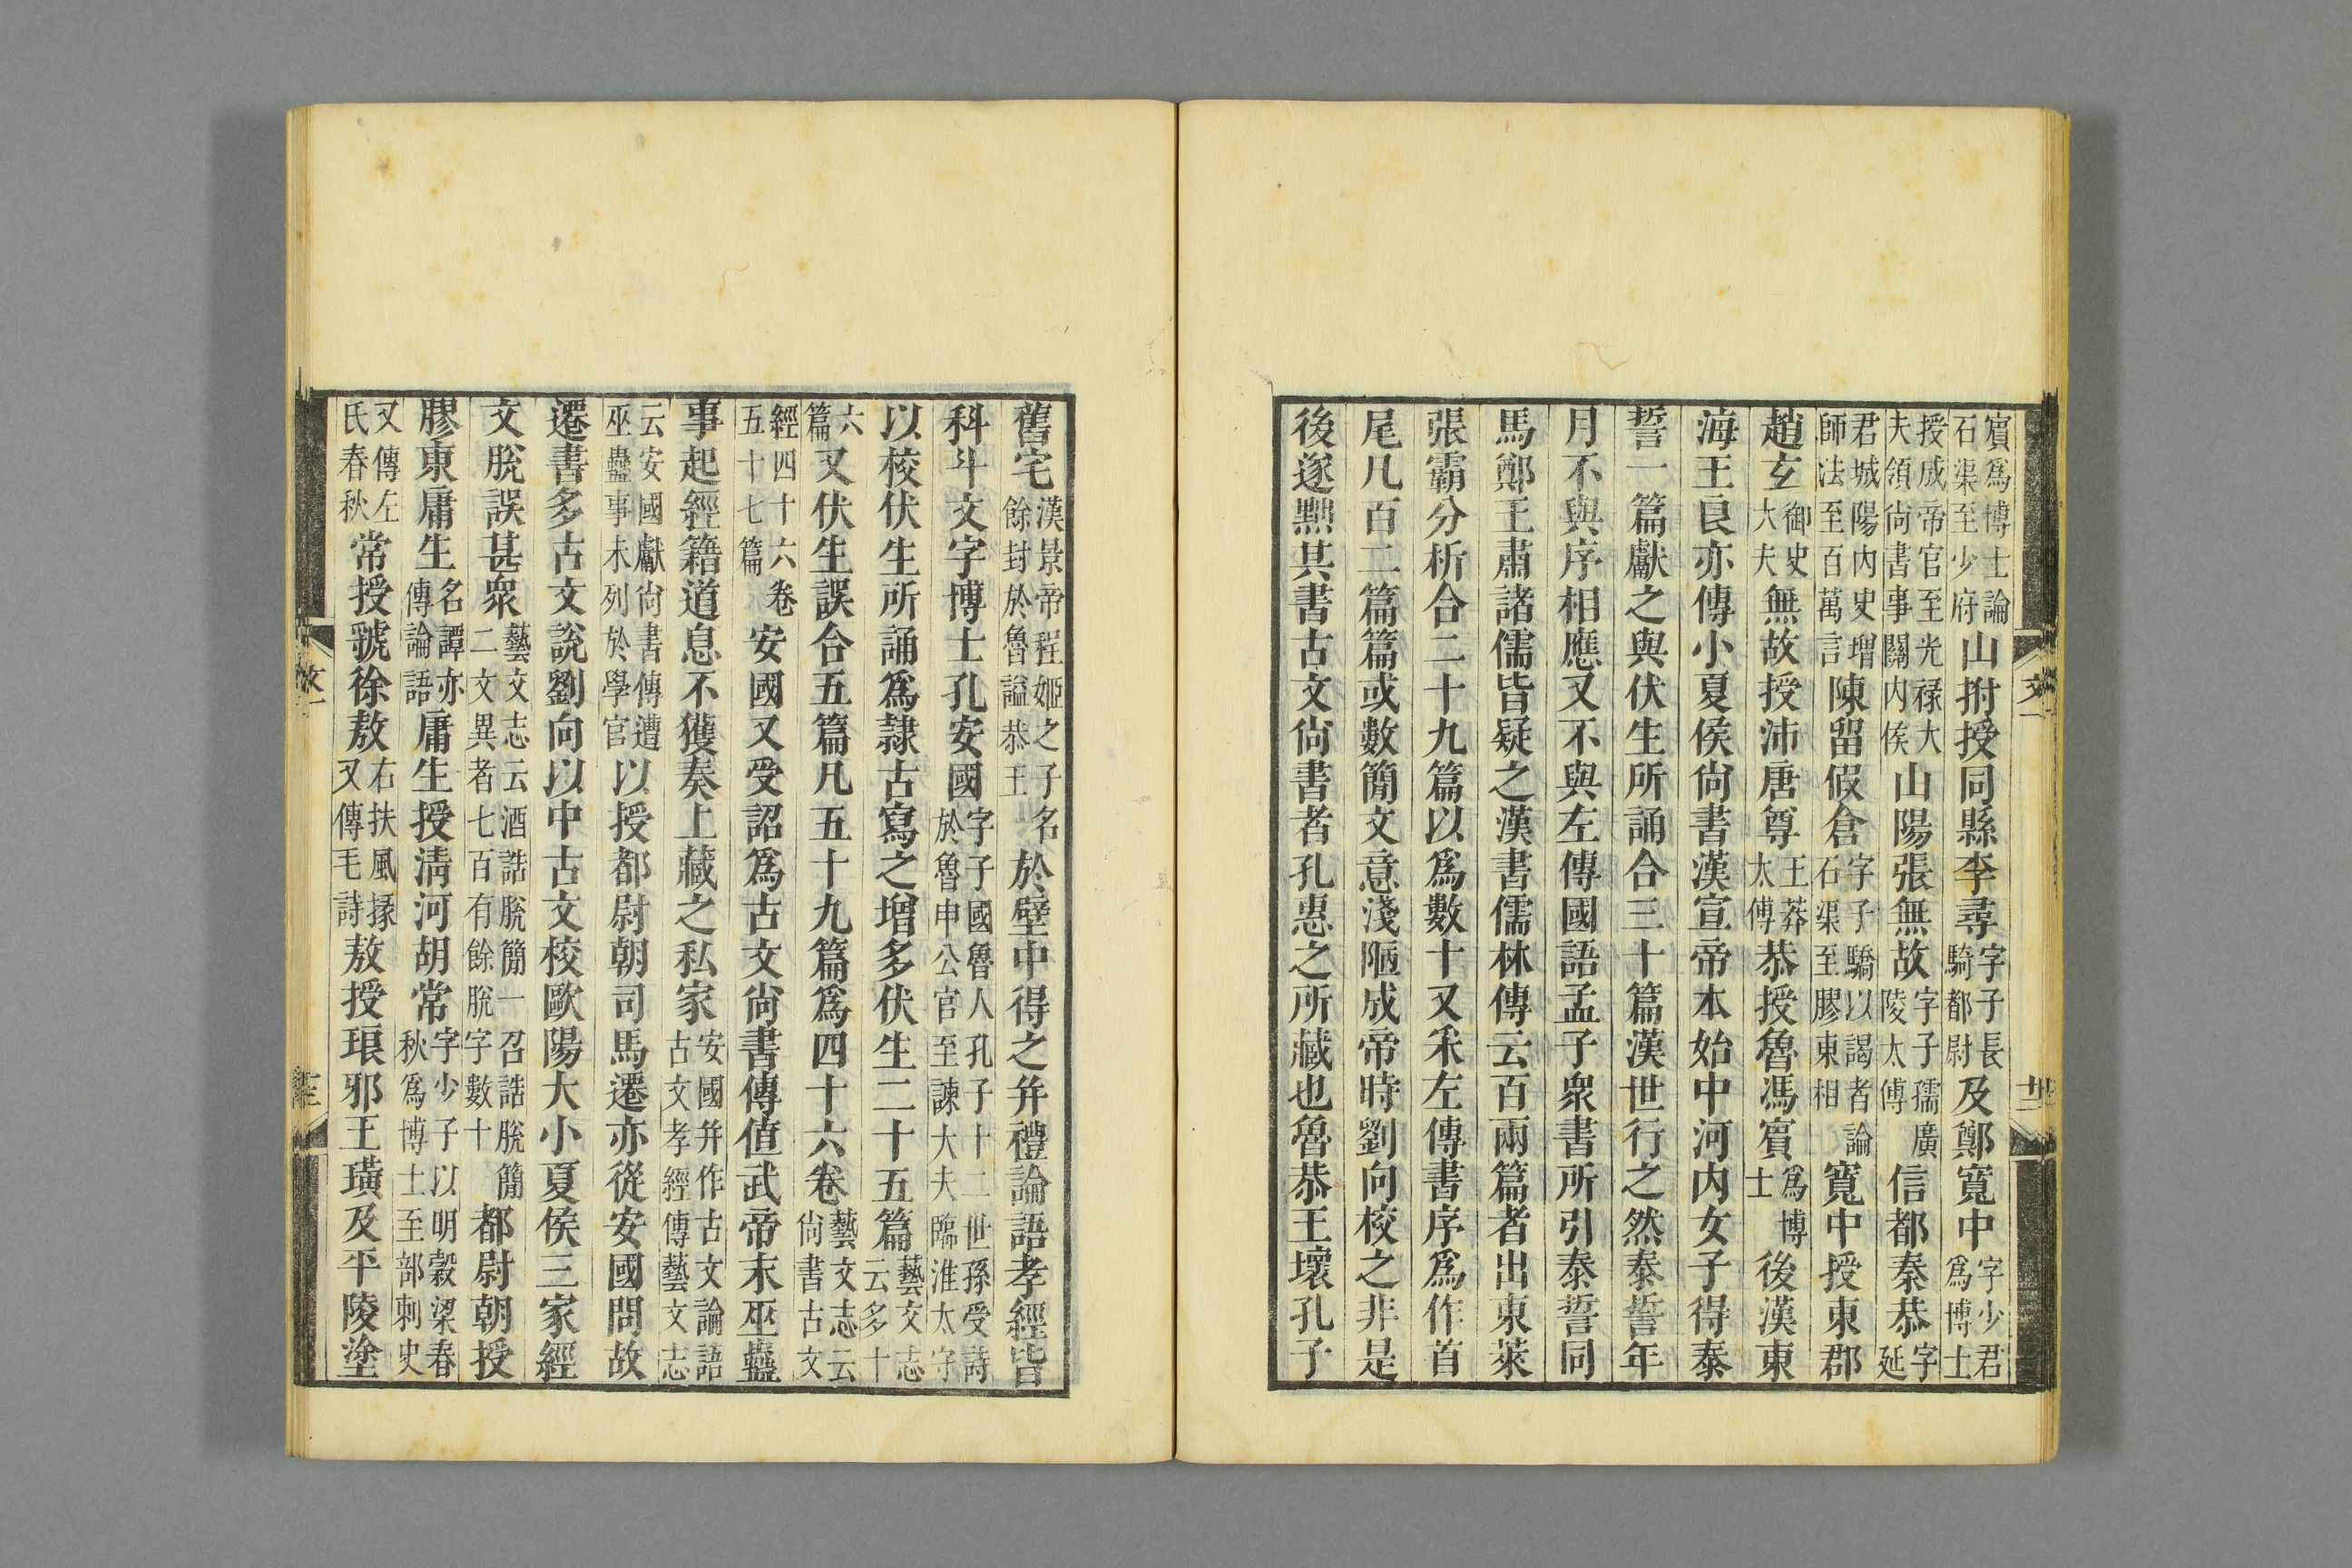 賔爲博士論石渠至少府山拊授同縣李尋字子長騎都尉及鄭寛中字少君爲博士
授成帝官至光禄大夫領尚書事關内侯山陽張無故字子孺廣陵太傅信都秦恭字延
君城陽内史增師法至百萬言陳留假倉字子驕以謁者論石渠至膠東相寛中授東郡
趙玄御史大夫無故授沛唐尊王莽太傅恭授魯馮賔爲博士後漢東
海王良亦傳小夏侯尚書漢宣帝本始中河内女子得泰
誓一篇獻之與伏生所誦合三十篇漢世行之然泰誓年
月不與序相應又不與左傳國語孟子衆書所引泰誓同
馬鄭王肅諸儒皆疑之漢書儒林傳云百兩篇者出東萊
張霸分析合二十九篇以爲數十又采左傳書序爲作首
尾凡百二篇篇或數簡文意淺陋成帝時劉向校之非是
後遂黜其書古文尚書者孔惠之所藏也魯恭王壞孔子
舊宅漢景帝程姬之子名餘封於魯謚恭王於壁中得之并禮論語孝經皆
科斗文字博士孔安國字子國魯人孔子十二世孫受詩於魯申公官至諫大夫臨淮太守
以校伏生所誦爲隷古寫之增多伏生二十五篇藝文志云多十
六篇又伏生誤合五篇凡五十九篇爲四十六卷藝文志云尚書古文
經四十六卷五十七篇安國又受詔爲古文尚書傳值武帝末巫蠱
事起經籍道息不獲奏上藏之私家安國并作古文論語古文孝經傳藝文志
云安國獻尚書傳遭巫蠱事未列於學官以授都尉朝司馬遷亦從安國問故
遷書多古文說劉向以中古文校歐陽大小夏侯三家經
文脫誤甚衆藝文志云酒誥脫簡一召誥脫簡二文異者七百有餘脫字數十都尉朝授
膠東庸生名譚亦傳論語庸生授淸河胡常字少子以明穀梁春秋爲博士至部刺史
又傳左氏春秋常授虢徐敖右扶風掾又傳毛詩敖授琅邪王璜及平陵塗